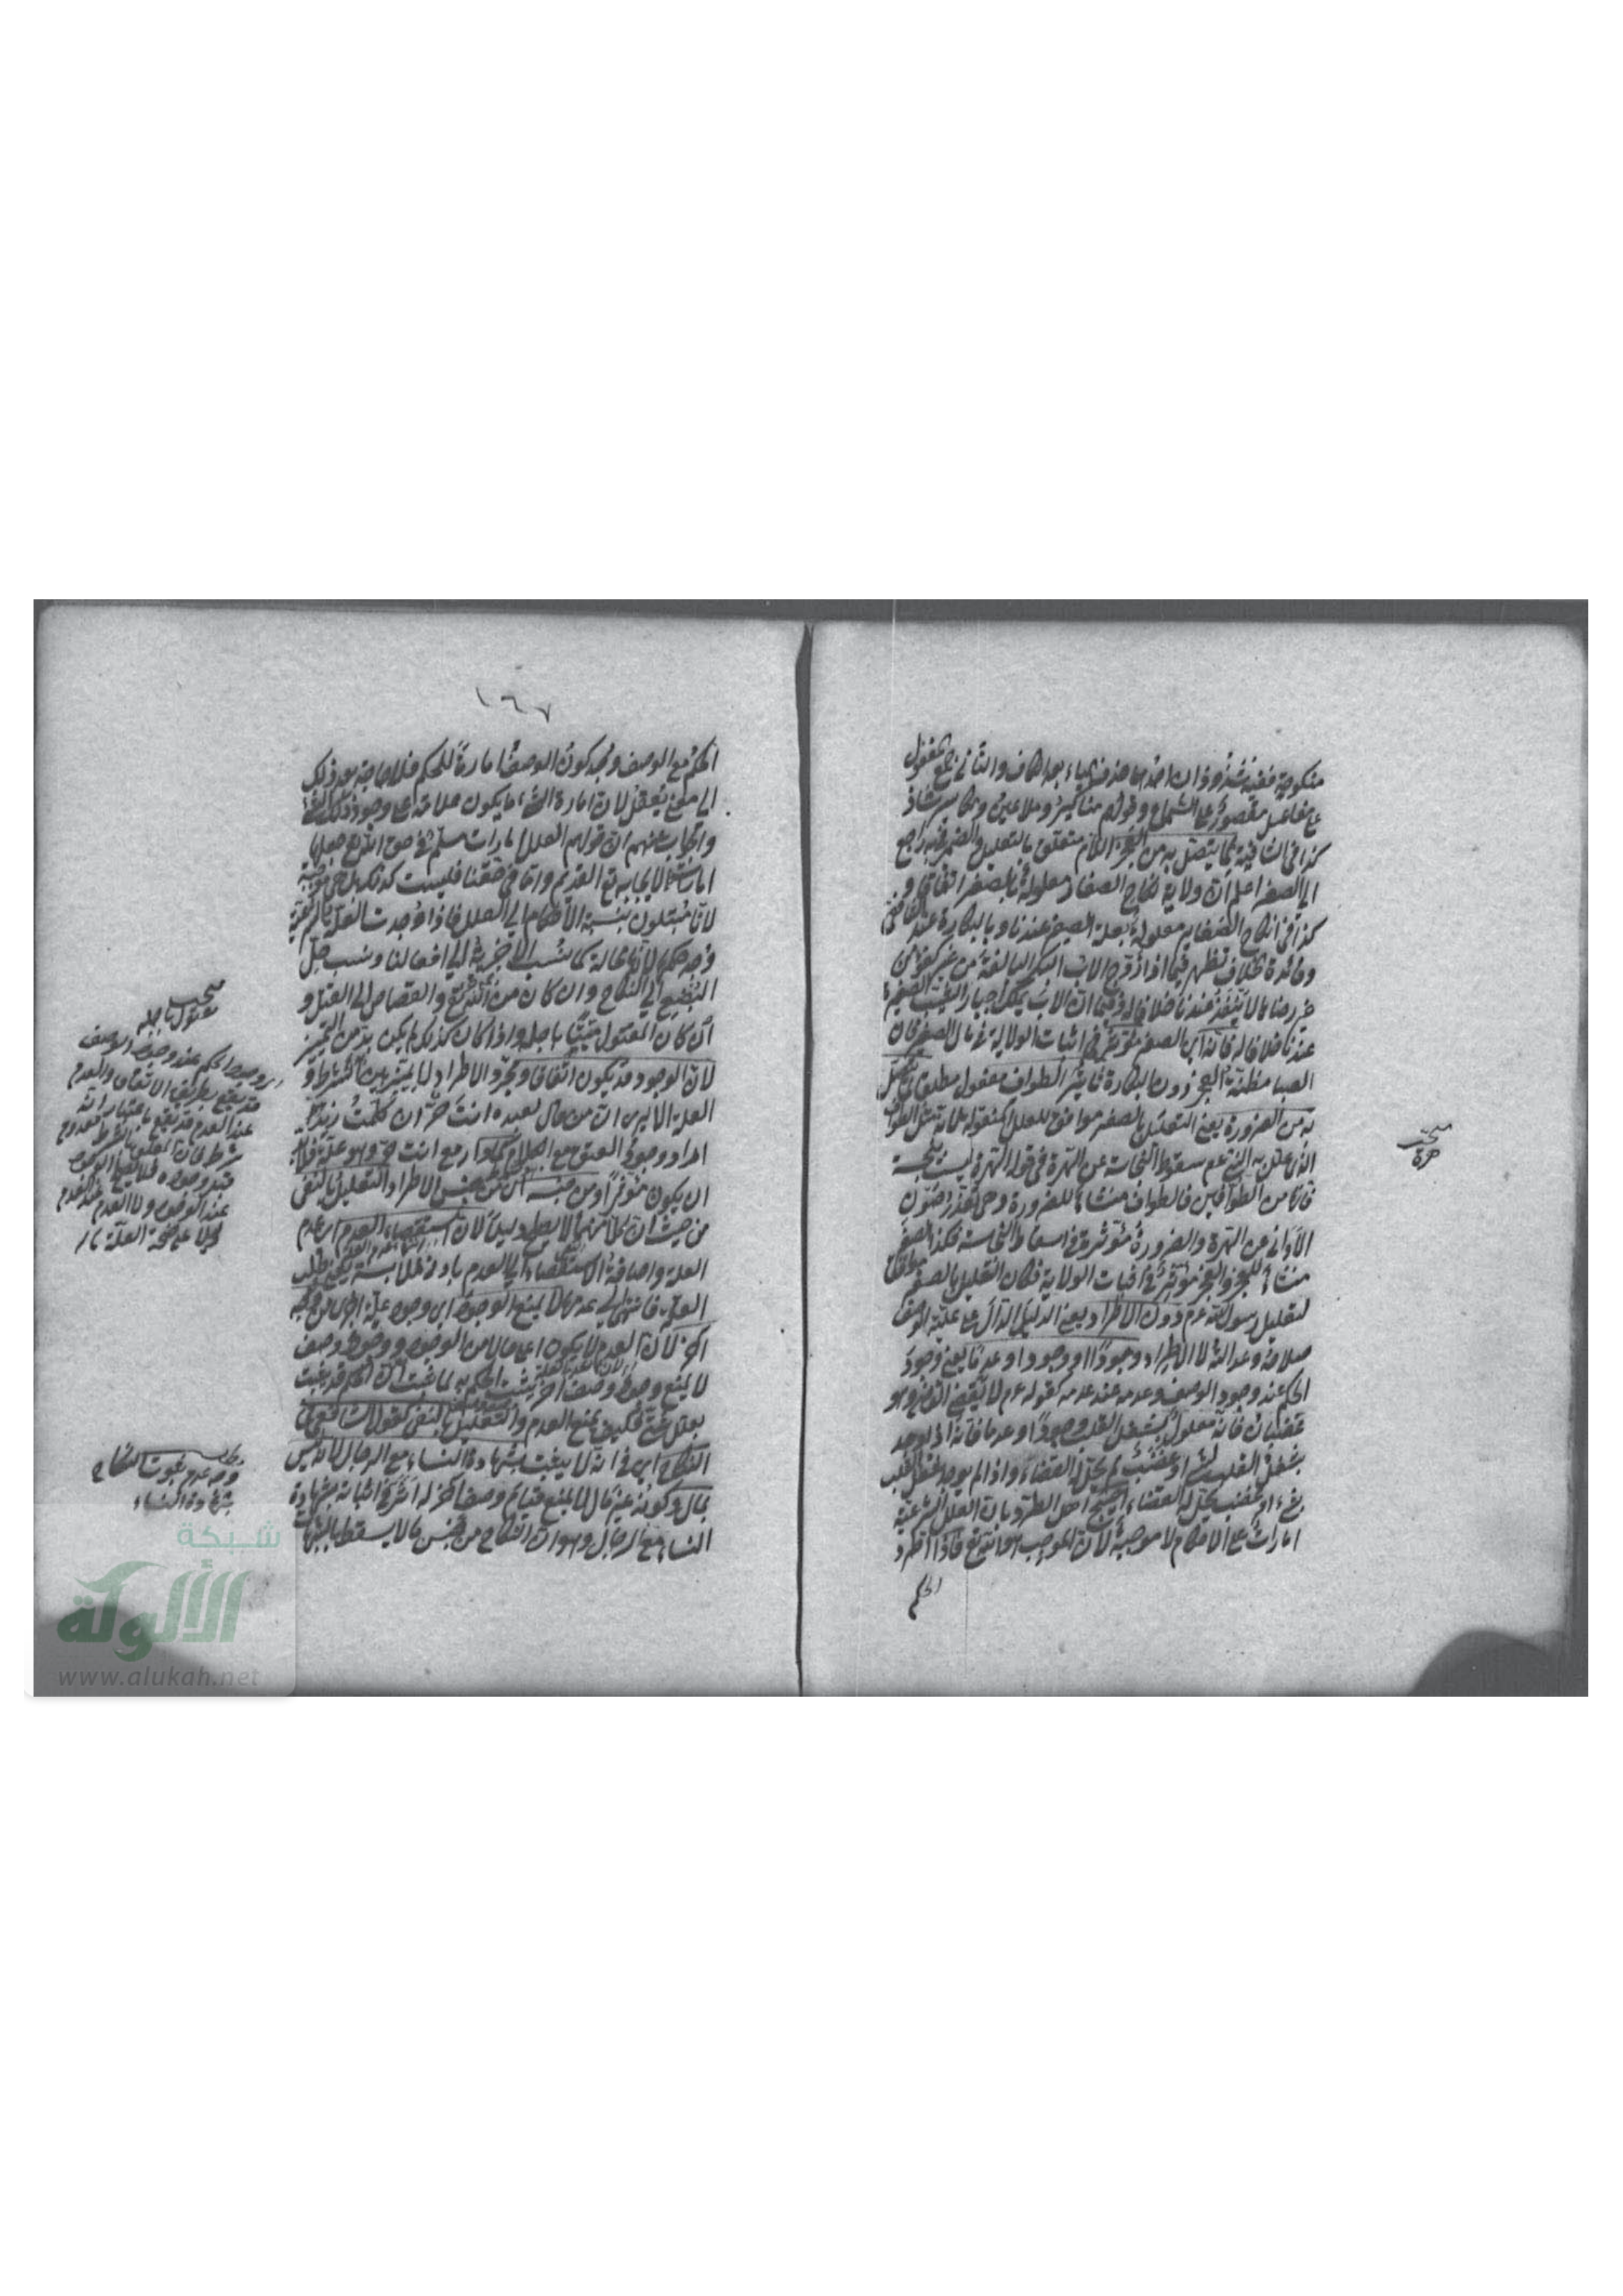 منكوحة ففيه شذوذان احدهما حذف الياء بعد الكاف والثاني جمع مفعول
على مفاعيل مقصور على السماع وقولهم مناكير وملاعين ومكاسير شاذ
كذا في الشافية لما يتصل به من العجز اللام متعلق بالتعليل والضمير فيه راجع
الى الصغر اعلم ان ولاية نكاح الصغار معلولة بالصغر اتفاقا و
كذا في انكاح الصغاير معلولة بعلة الصغر عندنا وبالبكارة عند الشافعي
وفائدة الخلاف تظهر فيما اذا زوج الاب البكر البالغة من غير كفؤ من
غير رضاها لا ينفذ عندنا خلافا له وفي ان الاب يملك اجبار الثيب الصغيرة
عندنا خلافا له فانه اي الصغر مؤثر في اثبات الولاية في مال الصغير لان
الصبا مظنة العجز دون البكارة تأثير الطواف مفعول مطلق لما يتصل
به من الضرورة يعني التعليل بالصغر موافق للعلل المنقولة لانه مثل الطواف
الذي علل به النبي عم سقوط النجاسة عن الهرة في قوله الهرة ليست بنجسة
فانها من الطوافين فالطواف منشأ للضرورة وهي تعذر صون
الاواني عن الهرة والضرورة مؤثرة في اسقاط النجاسة فكذا الصغر
منشأ للعجز والعجز مؤثر في اثبات الولاية فكان التعليل بالصغر موافقا
لتعليل رسول الله عم دون الاطراد يعني الدليل الدال على علية الوصف
صلاحه وعدالته لا الاطراد وجودا او وجودا وعدما يعني وجود
الحكم عند وجود الوصف وعدمه عند عدمه كقوله عم لا يقضي القاضي وهو
غضبان فانه معلول بشغل القلب وجودا وعدما فانه اذا وجد
شغل القلب او غضب لم يحل له القضاء واذا لم يوجد شغل القلب
او غضب يحل له القضاء احتج اهل الطرد بان العلل الشرعية
امارات على الاحكام لا موجبة لان الموجب هو الله تع فاذا اطرد
الحكم
مبحث
هرة
١٦٧
الحكم مع الوصف وجد كون الوصف امارة للحكم فلا حاجة بعد ذلك
الى معنى يعقل لان امارة الشيء ما يكون علامة على وجود ذلك الشيء
والجواب عنهم ان قولهم العلل امارات مسلم في حق الشرع جعلها
امارات لايجابه تع القديم واما في حقنا فليست كذلك بل هي موجبة
لانا مبتلون بنسبة الاحكام الى العلل فاذا وجدت العلة
وجد حكمها لا محالة كما نسب الى افعالنا ونسب حل
البضع الى النكاح وان كان من الشرع والقصاص الى القتل و
ان كان المقتول ميتا باجله واذا كان كذلك لم يكن بد من التمييز
لان الوجود قد يكون اتفاقا ومجرد الاطراد لا يميز بين الشرط و
العلة الا يرى ان من قال لعبده انت حر ان كلمت زيدا
وجود العتق مع الكلام كما دار مع انت حر وهو علة
ان يكون مؤثرا ومن جنسه اي من جنس الاطراد التعليل بالنفي
من حيث ان كلا منهما لا يصلح دليلا لان استقصاء العدم اي عدم
العلة
لا يمنع الوجود اي وجود علة اخرى
لان العدم لا يكون اعلى حالا من الوجود ووجود وصف
لا يمنع وجود وصف آخر يثبت الحكم به لما ثبت ان الحكم قد يثبت
بعلل شتى فكيف يمنع العدم والتعليل بالنفي كقول الشافعي في
النكاح اي في انه لا يثبت بشهادة النساء مع الرجال لانه ليس
بمال وكونه غير مال لا يمنع قيام وصف آخر له اثر في اثباته بشهادة
النساء مع الرجال وهو ان النكاح من جنس ما لا يسقط بالشبهات
مبحث
مقتول باجله
وجود الحكم عند وجود الوصف
قد يقع بطريق الاتفاق والعدم
عند العدم قد يقع باعتبار انه
شرط فان المعلق بالشرط معدوم
قبل وجوده فلا يصلح الوجود
عند الوجود ولا العدم عند العدم
دليلا على صحة العلة
مطلب
وجه عدم ثبوت النكاح
بشهادة النساء
شبكة
الألوكة
www.alukah.net